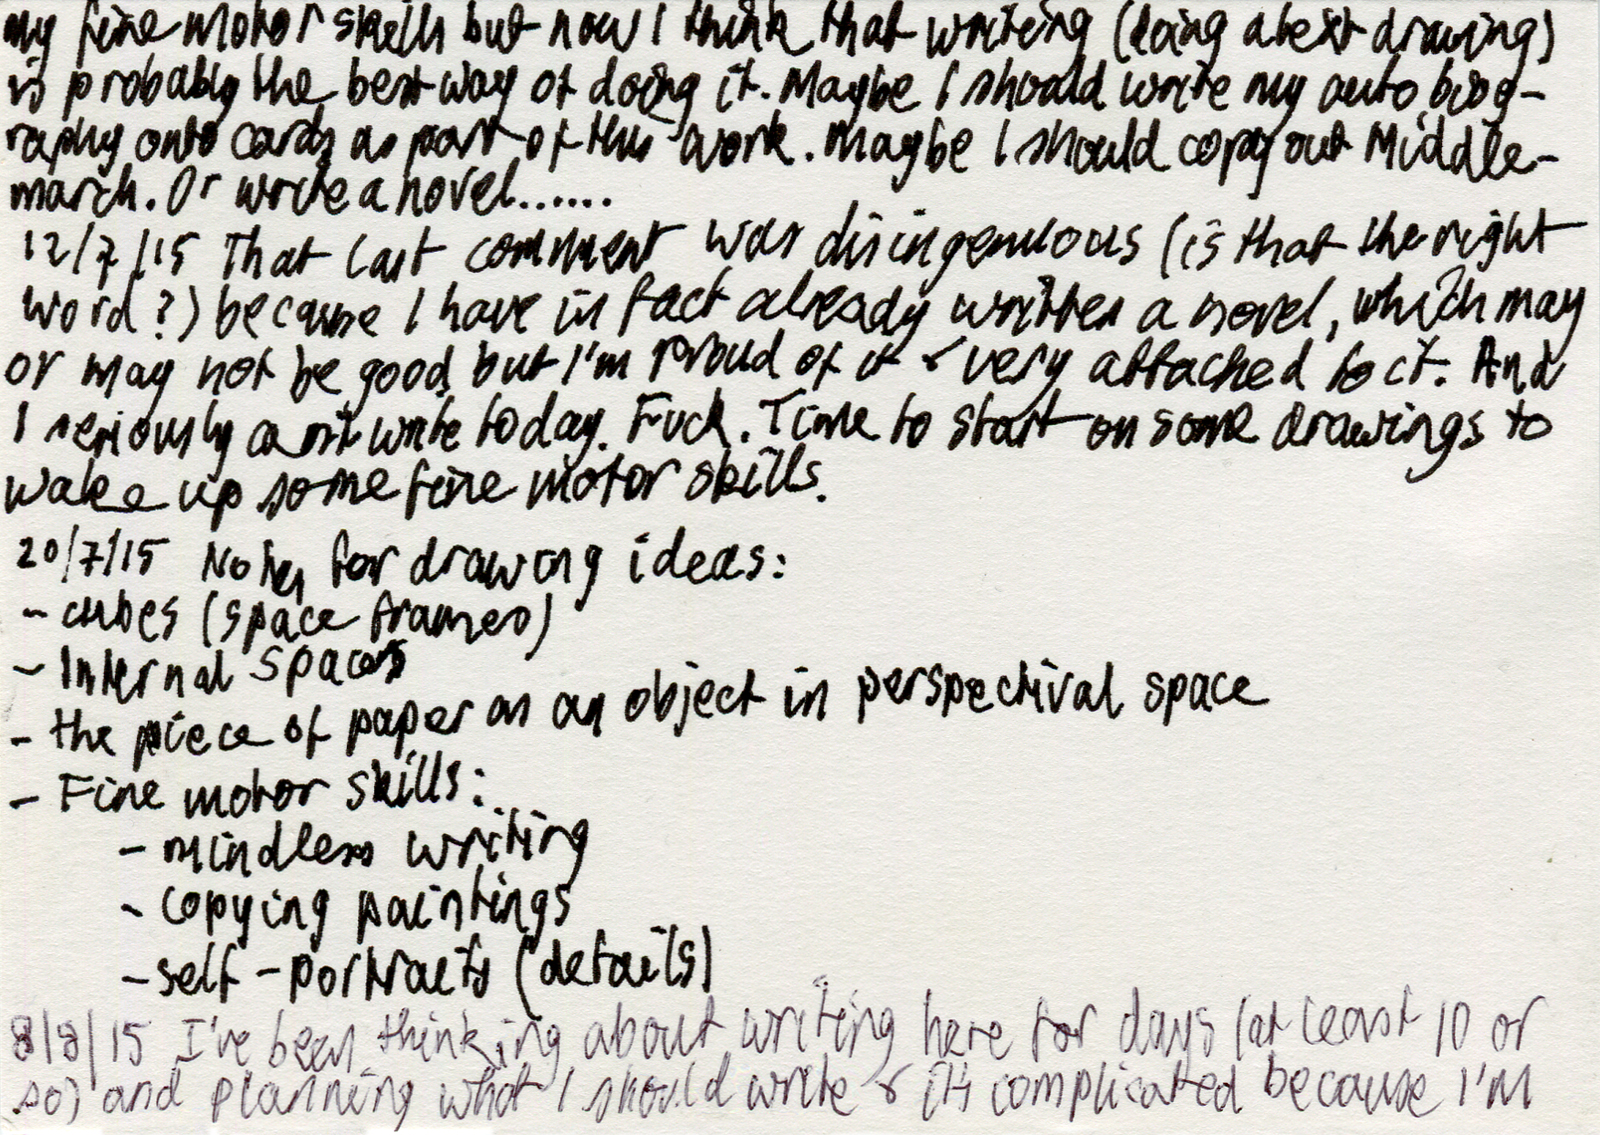 my fine motor skills but now I think that writing (doing a text drawing)
is probably the best way of doing it. Maybe I should write my autobiog-
raphy onto cards as part of this work. Maybe I should copy out Middle-
march. Or write a novel......
12/7/15 That last comment was disingenuous (is that the right
word?) because I have in fact already written a novel, which may
or may not be good but I'm proud of it & very attached to it. And
I seriously can't write today. Fuck. Time to start on some drawings to
wake up some fine motor skills.
20/7/15 Notes for drawing ideas:
- cubes (space frames)
- Internal spaces
- the piece of paper as an object in perspectival space
- Fine motor skills:..
- mindless writing
- copying paintings
- self-portraits (details)
8/8/15 I've been thinking about writing here for days (at least 10 or
so) and planning what I should write & it's complicated because I'm